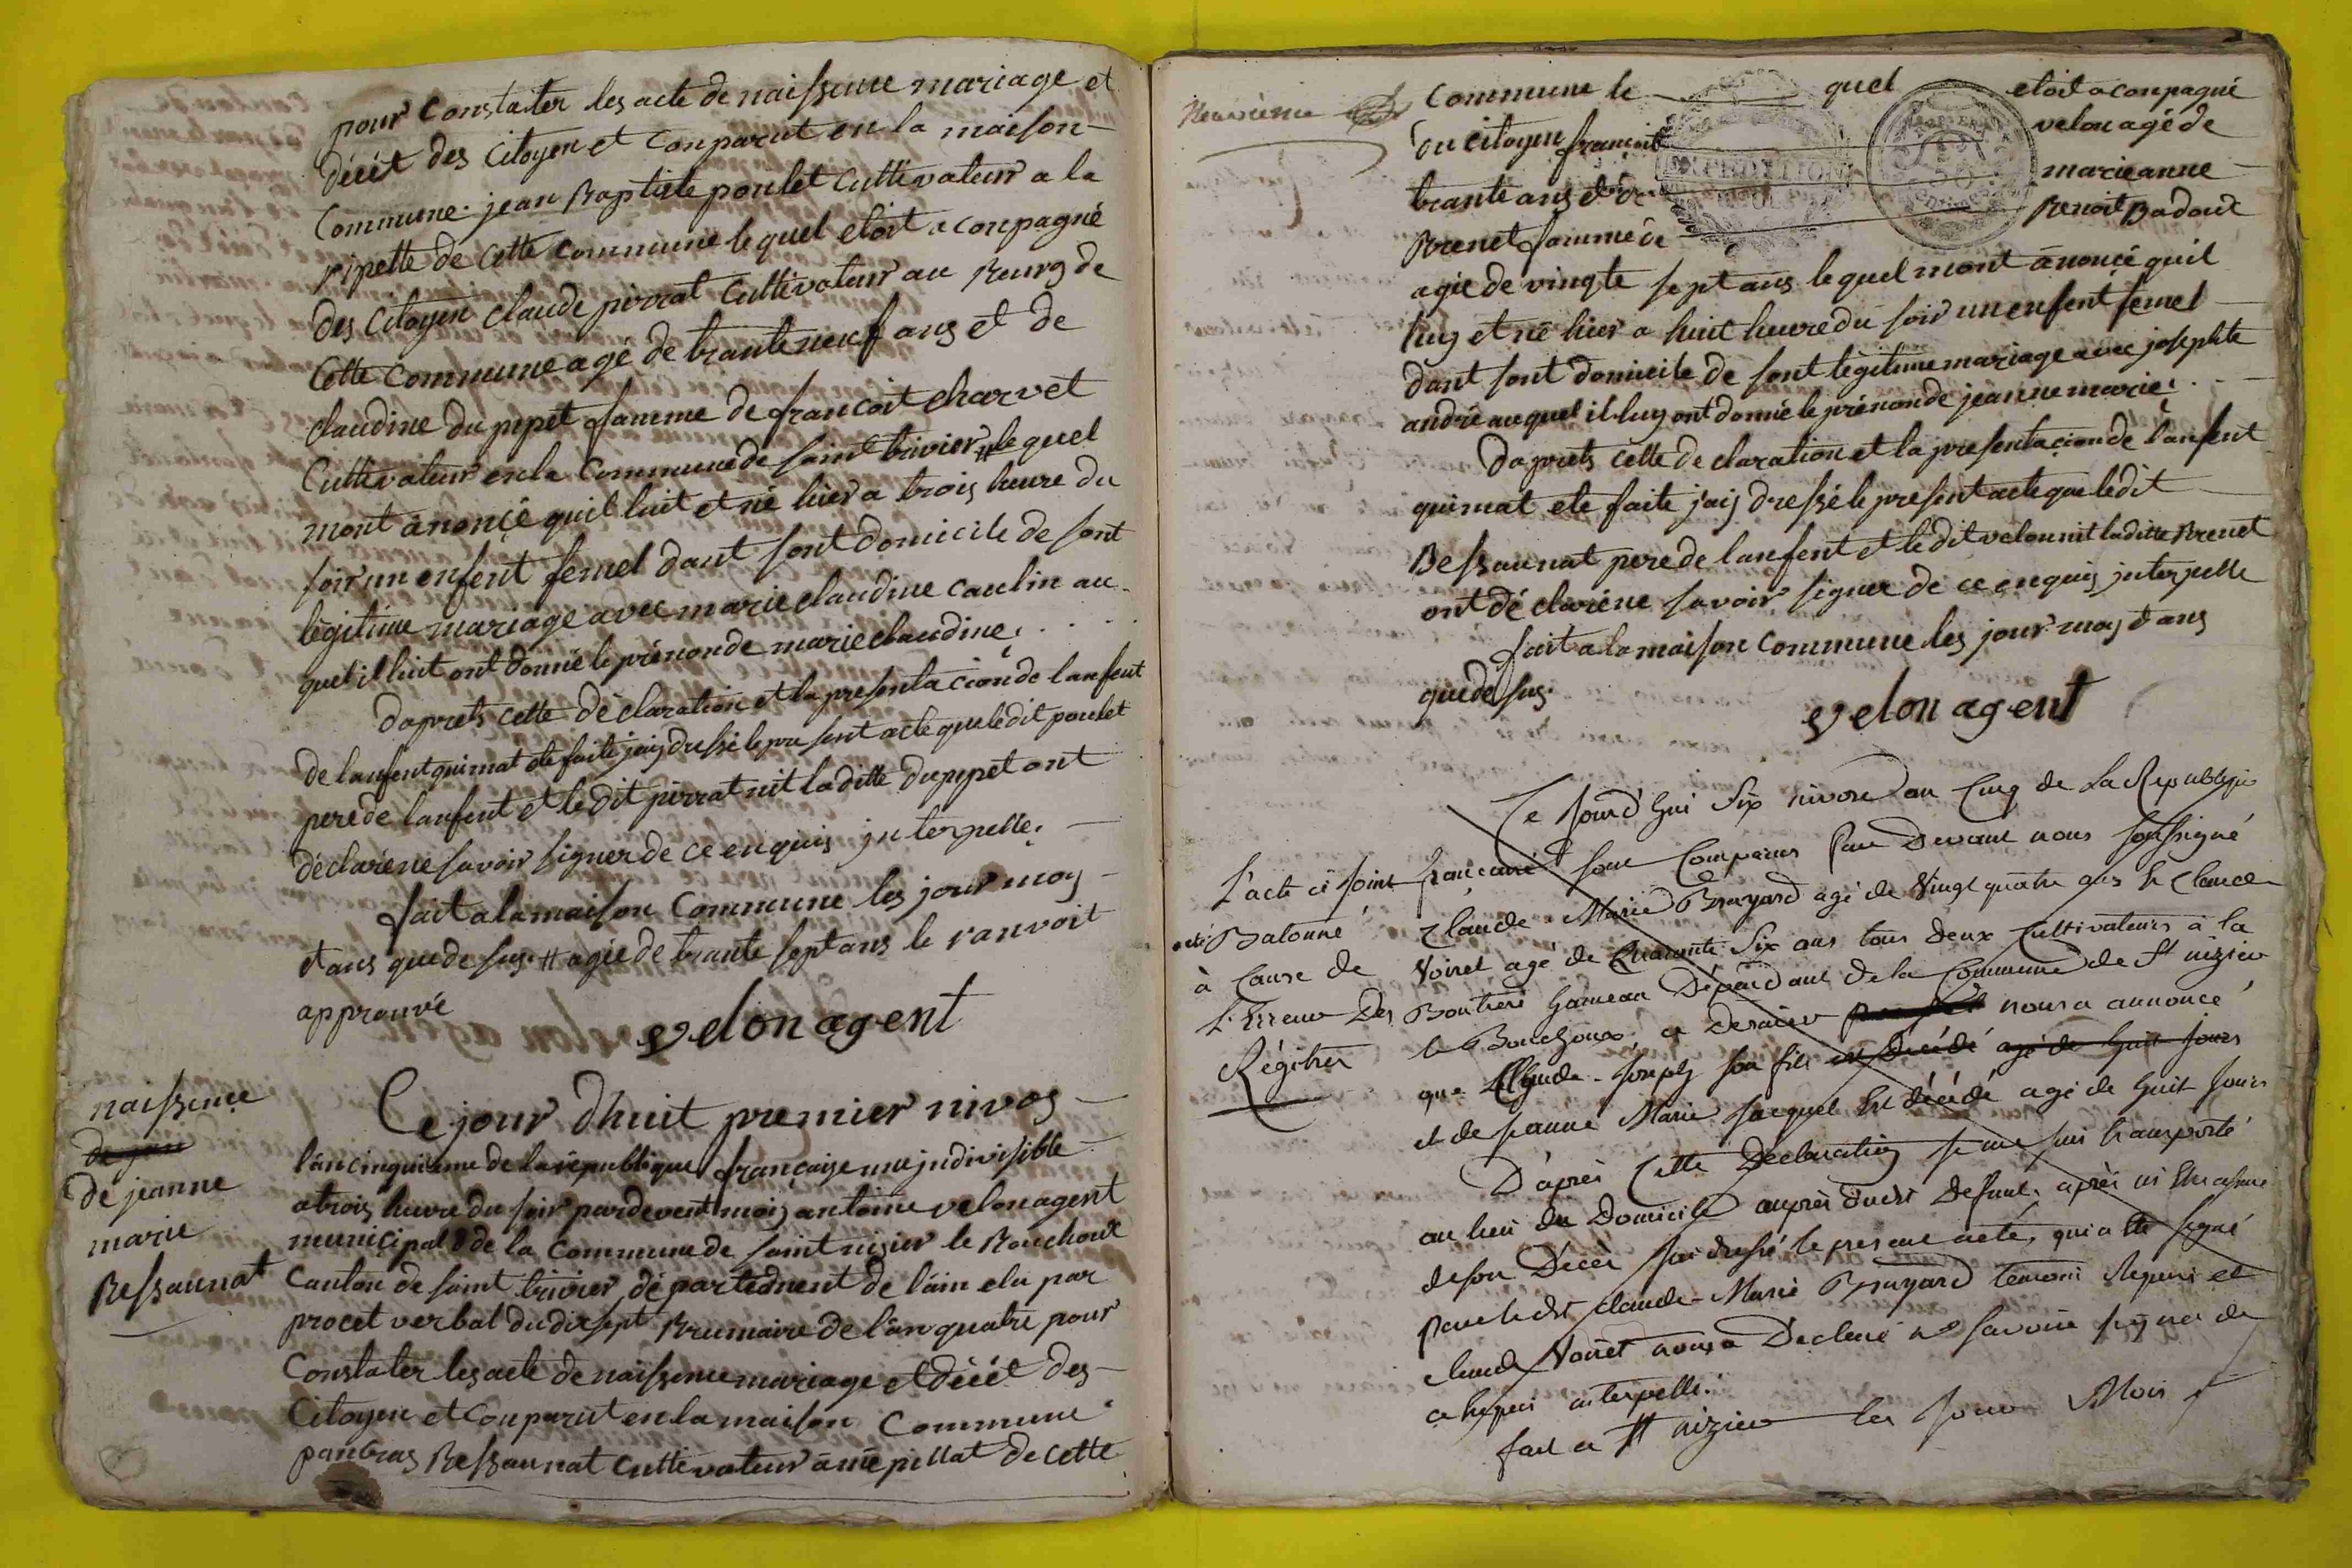 pour Constater les acte de naissence mariage et
décèt des Citoyen et Conparut en la maison
Commune. jean Baptiste poulet Cultivateur a la
ripette de Cette Commune le quel etoit aconpagné
des Citoyen Claude pirrat Cultivateur au Bourg de
Cette Commune agé de trante neuf ans et de
Claudine du pupet famme de francoit Charvet
Cultivateur en la Commune de saint trivier # le quel
mont anoncé quil luit et né hier a trois heure du
soir un enfent femel dant sont domicile de sont
légitime mariage avec marie claudine caulin au
quel il luit ont donné le prénon de marie claudine.
daprets cette déclaration et la presentacion de lanfent
de lanfent qui mat ete faite jaij dressé le present acte que ledit poulet
pere de lanfent et le dit pirrat nit laditte dupupet ont
déclaré ne savoir signer de ce enquis jnterpelle.
fait a la maison Commune les jour moy
et ans que de sus. # agée de trante sept ans le ranvoit
approuvé
velon agent
naissence
de jan
de jeanne
marie
Bessaunat
Ce jour dhuit premier nivos
lan cinquieme de la république française une jndivisible
a trois heure du soir pardevent moij antoine velon agent
municipal de la Commune de saint nisier le Bouchoux
Canton de saint trivier département de lain elu par
procet verbal du dix sept Brumaire de lan quatre pour
Constater les acte de naissence mariage et décèt des
Citoyen et Conparut en la maison Commune
panbras Bessaunat Cultivateur a mépillat de cette
Neuvième
Commune le quel etoit aconpagné
du Citoyen françoit velon agé de
trante ans et de marie anne
Brenet famme de Benoit Badout
agée de vingte sept ans le quel mont anoncé quil
luy et né hier a huit heure du soir un enfent femel
dant sont domicile de sont légitime mariage avec josephte
andré auquel il luy ont donné le prénon de jeanne marie.
daprets cette declaration et la presentacion de lanfent
qui mat ete faite jaij dressé le present acte que ledit
Bessaunat pere de lanfent et ledit velon nit laditte Brenet
ont déclaré ne savoir signer de ce enquis jnterpelle
fait a la maison Commune les jour moy et ans
que de sus.
velon agent
Ce Jourd'hui Six nivose an Cinq de La Republique
L'acte ci joint
acté Batonné
à Cause de
L'Erreur Des
Régitres
francaise sont Comparus Par Devant nous soussigné
Claude-Marie Brayard agé de Vingt quatre ans Et Claude
Voiret agé de Quarante Six ans tous deux Cultivateurs à la
Boutiere hameau Dépendant de la Commune de St nizier
le Bouchoux, ce dernier nous a annoncé
que Claude-Joseph son fils est décédé agé de huit jours
et de Jeanne Marie Jacquet Est décédé agé de huit jours
D'après Cette Declaration je me suis transporté
au lieu du Domicile auprès dudit Defunt, après m'etre assuré
de son Décès j'ai dressé le present acté, qui a été signé
par le dit Claude-Marie Brayard temoin Requis et
claude Voiret nous a Declaré ne savoir signer de
ce Requis interpellé.
fait a St nizier les Jour Mois et